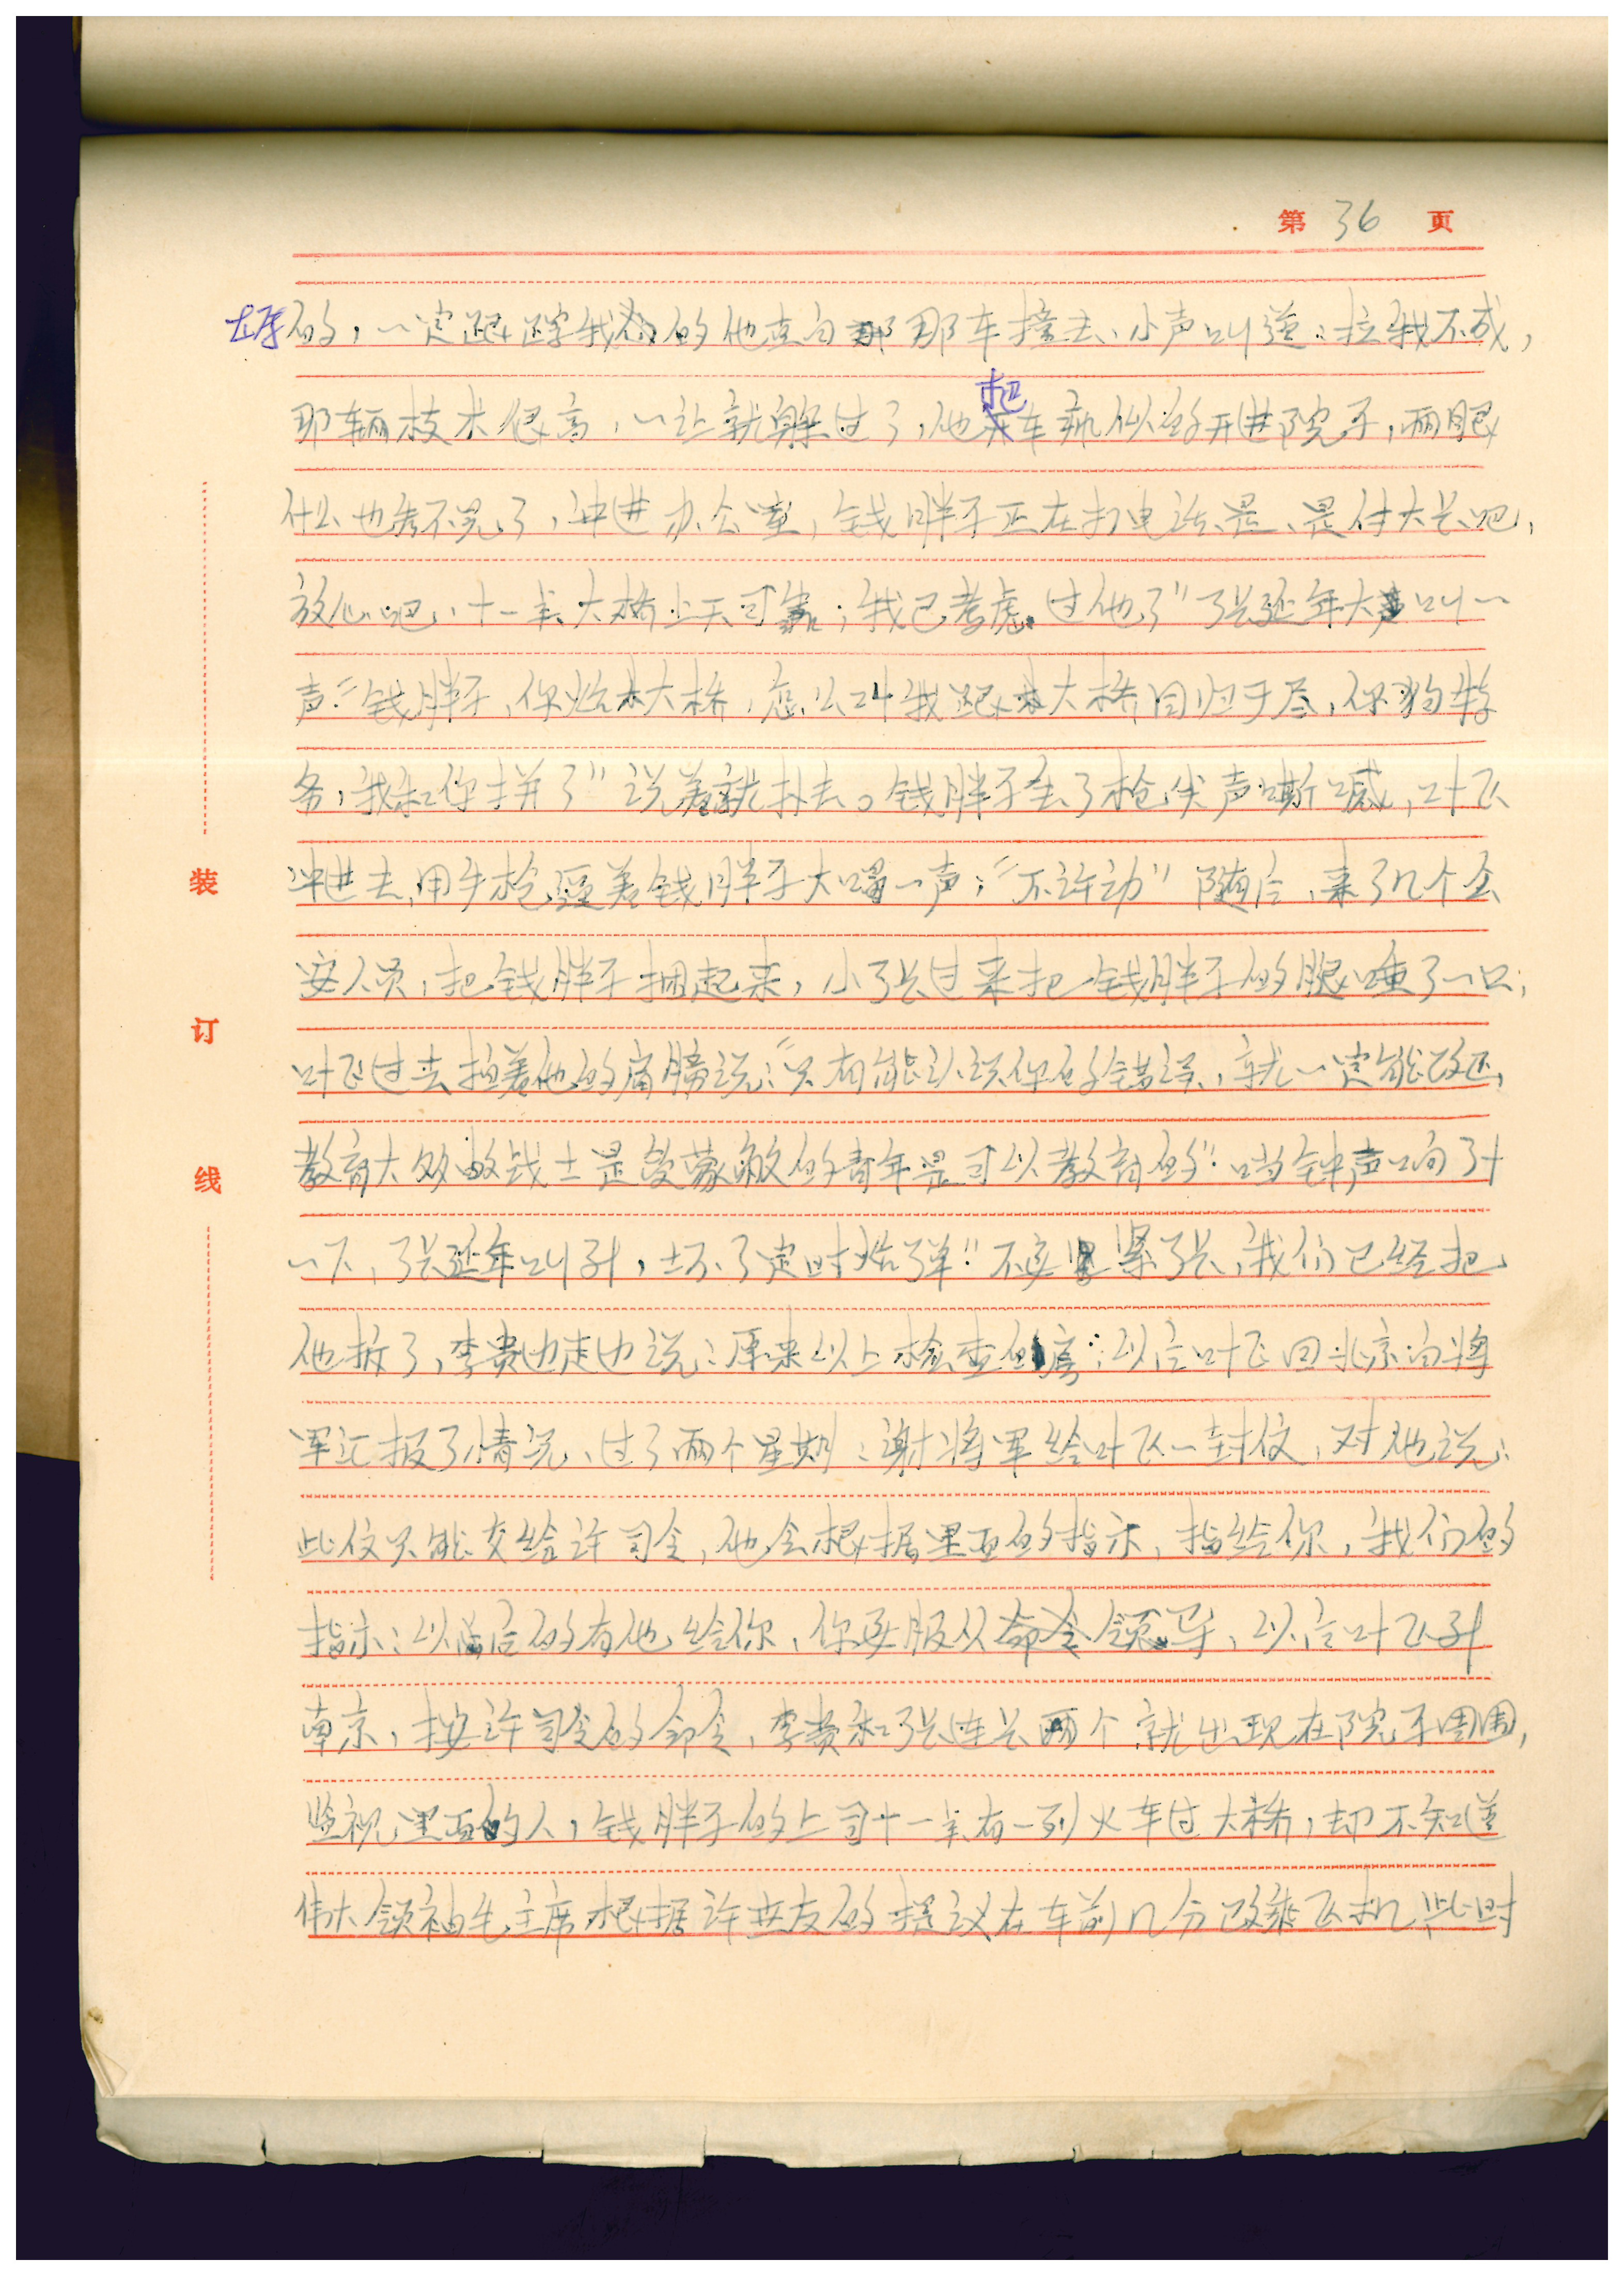 第 36 页
的，一定跟踪我们的他直向那那车撞去、小声叫道：拉我不成，
那辆技术很高，一让就躲过了，他把车疯似的开进院子，两眼
什么也看不见了，冲进办公室，钱胖子正在打电话、是、是付大长吧，
放心吧、十一半、大桥上天可靠；我已考虑过他了"张延年大声叫一
声："钱胖子，你炸大桥，怎么叫我跟大桥同归于尽，你狗特
务，我和你拼了"说着就扑去。钱胖子去了枪尖声嘶喊，叶飞
冲进去，用手枪逼着钱胖子大喝一声："不许动"随后，来了几个公
安人员，把钱胖子捆起来，小张过来把钱胖子的腿踢了一只；
叶飞过去拍着他的肩膀说："只有能认识你的错误，就一定能改正，
教育大多数战士是受蒙蔽的青年是可以教育的"：当钟声响了十
一下，张延年叫到，坏了定时炸弹!!不要紧张，我们已经把
他拆了，李贵边走边说：原来以上检查的
以后叶飞回北京向将
军汇报了情况、过了两个星期：谢将军给叶飞一封信，对他说：
此信只能交给许司令，他会根据里面的指示，指给你，我们的
指示：以后的有他给你，你要服从命令领导，以后叶飞到
南京，按许司令的命令，李贵和张连长两个就出现在院子周围，
监视里面的人，钱胖子的上司十一半有一列火车过大桥，却不知道
伟大领袖毛主席根据许世友的提议在车前几分改乘飞机此时
装
订
线